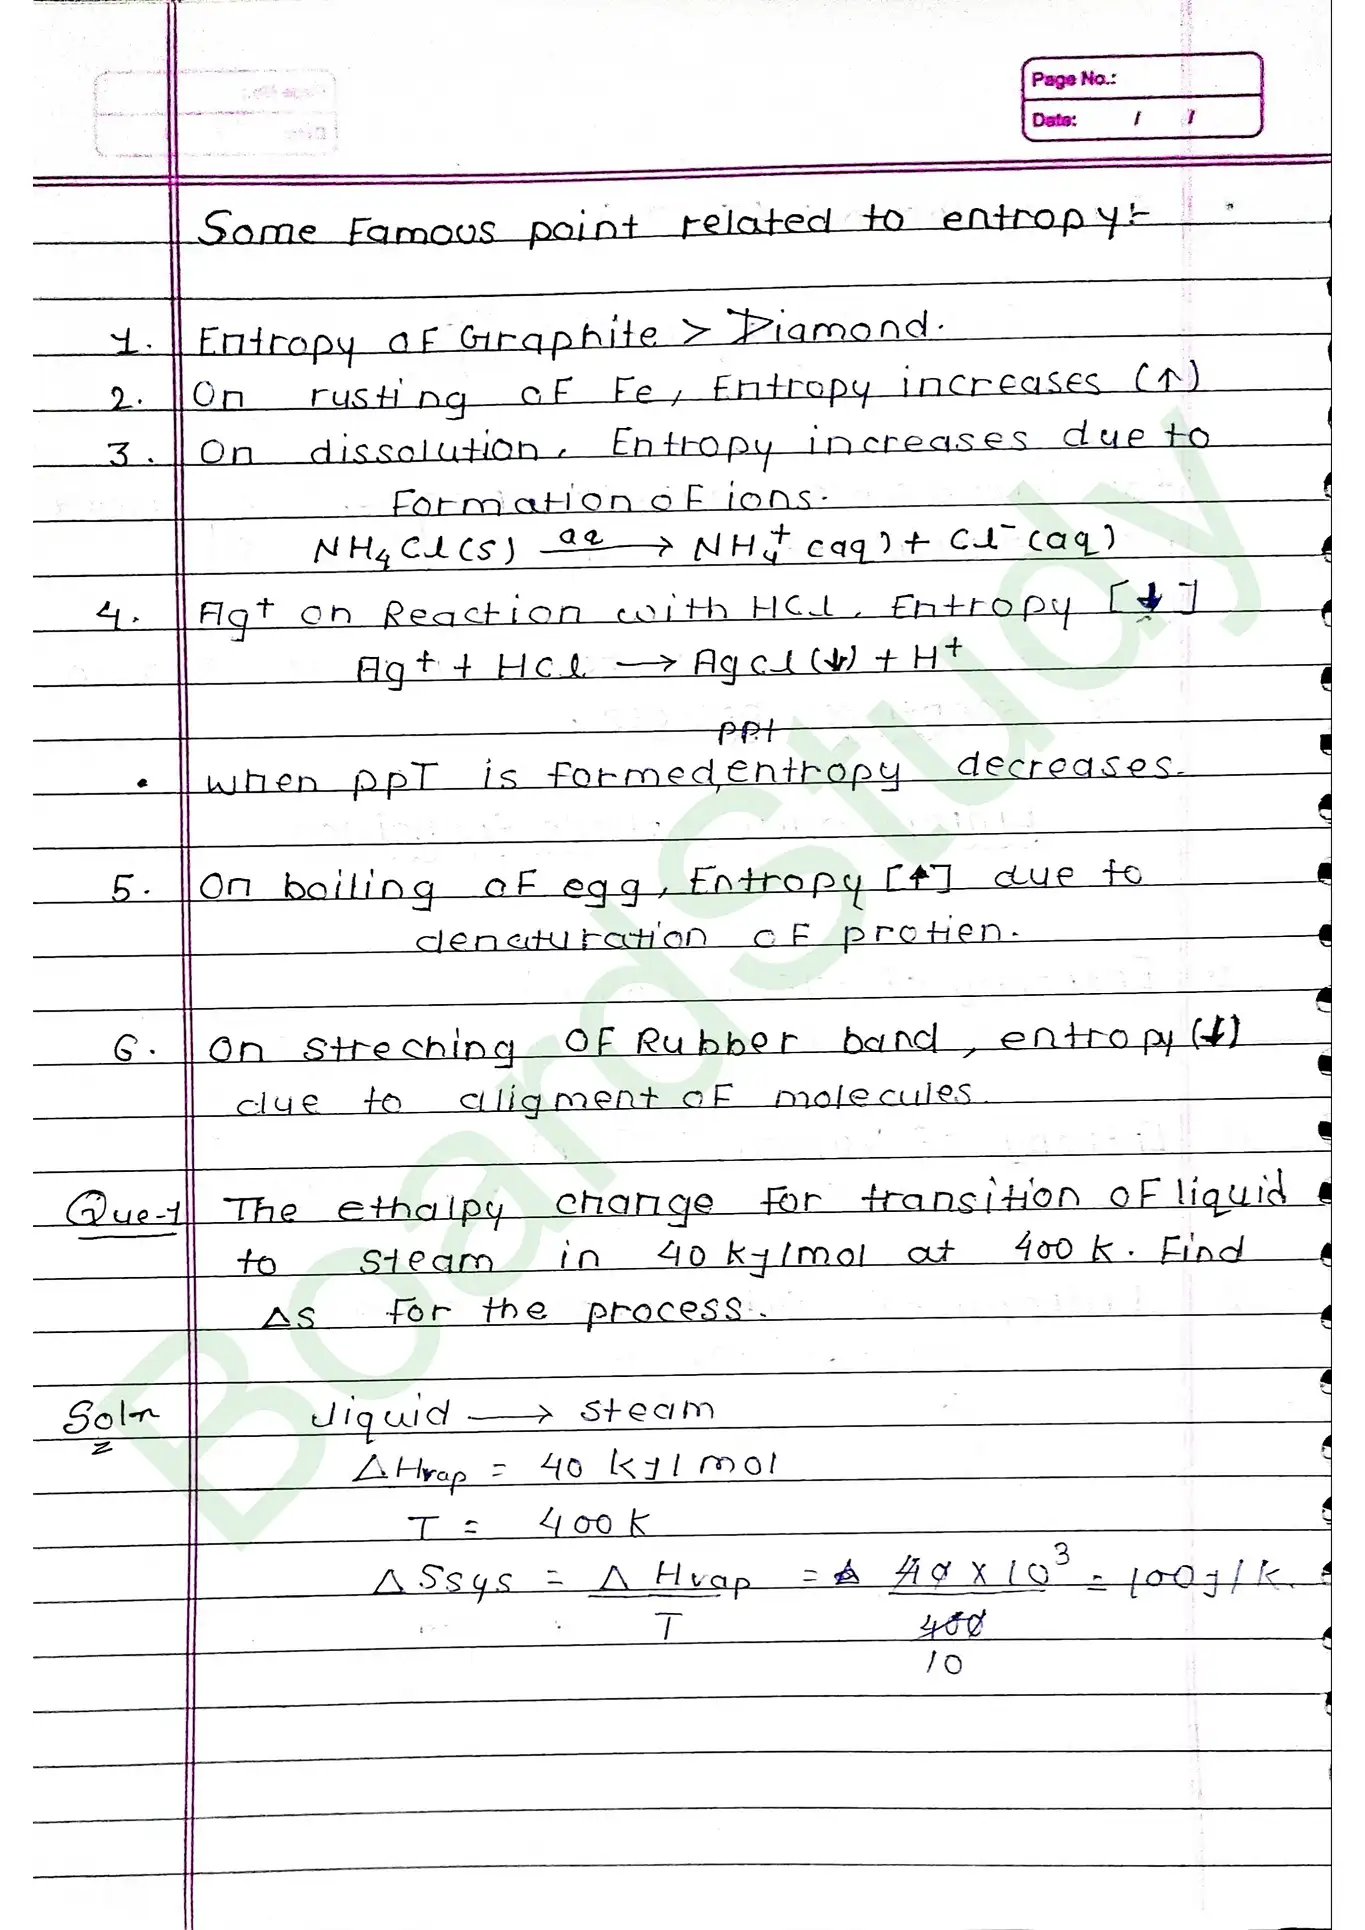 Page No.:
Date: / /
Some Famous point related to entropy:-
1. Entropy of Graphite > Diamond.
2. On rusting of Fe, Entropy increases (↑)
3. On dissolution, Entropy increases due to
Formation of ions.
NH₄Cl(s) aq → NH₄⁺ (aq) + Cl⁻ (aq)
4. Ag⁺ on Reaction with HCl, Entropy [↓]
Ag⁺ + HCl → AgCl (↓) + H⁺
ppt
• when ppT is formed, entropy decreases.
5. On boiling of egg, Entropy [↑] due to
denaturation of protien.
6. On streching of Rubber band, entropy (↓)
due to aligment of molecules.
Que-1 The ethalpy change for transition of liquid
to steam in 40 kJ/mol at 400 K. Find
ΔS for the process.
Soln liquid → steam
ΔHvap = 40 kJ/mol
T = 400 K
ΔSsys = ΔHvap / T = 40 × 10³ / 400 = 100 J/K.
10
BoardStudy